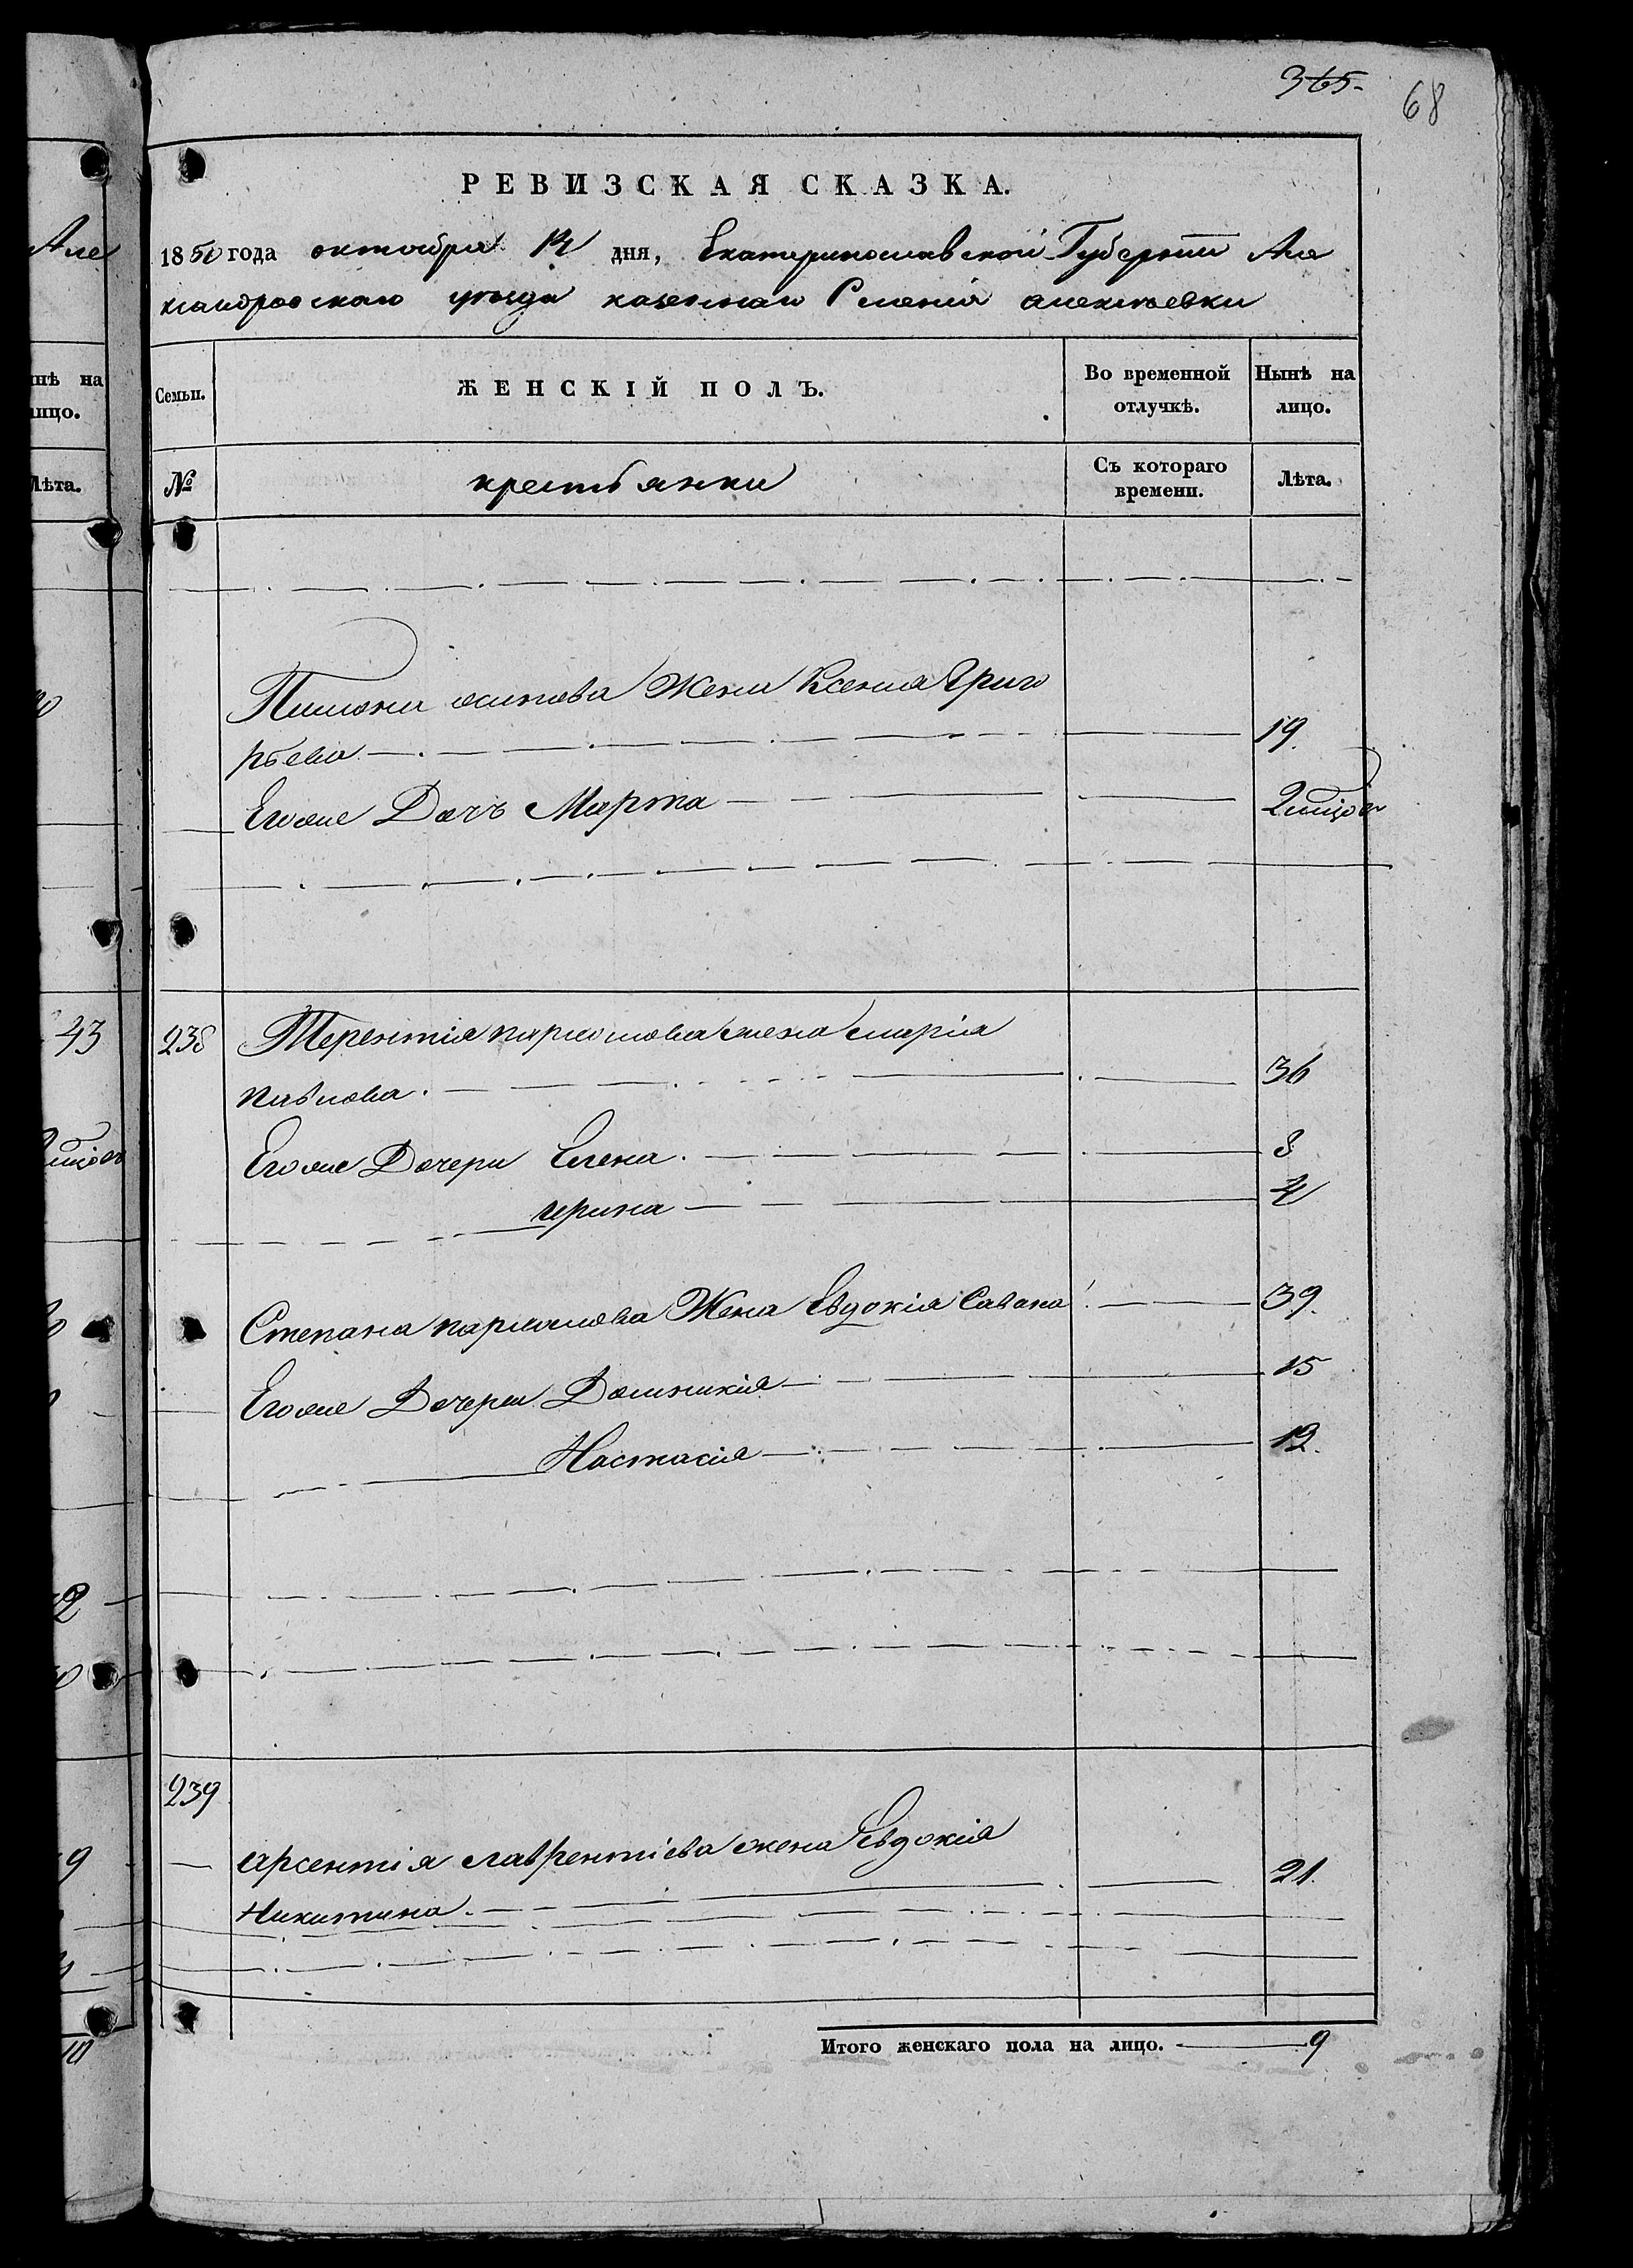 365.
68
РЕВИЗСКАЯ СКАЗКА.
1850 года октября 14 дня, Екатеринославской Губернии Але
ксандровскаго уѣзда казеннаго Селенія алексѣевки
Семьи.
ЖЕНСКІЙ ПОЛЪ.
Во временной отлучкѣ.
Нынѣ на лицо.
№
крестьянки
Съ котораго времени.
Лѣта.
осипова Жена Ксения Григо
рьева 19.
Егоже Дочъ Марта
238 Терентія пармонова жена марія
павлова. 36
Егоже Дочери Елена. 8
ирина 4
Степана пармонова Жена Евдокія Савана 39.
Егоже Дочери Домникія 15
Настасія 12.
239
арсентія лаврентіева жена Евдокія
Никитина. 21.
Итого женскаго пола на лицо. 9
Але
нѣ на
ицо.
Лѣта.
43
9
10